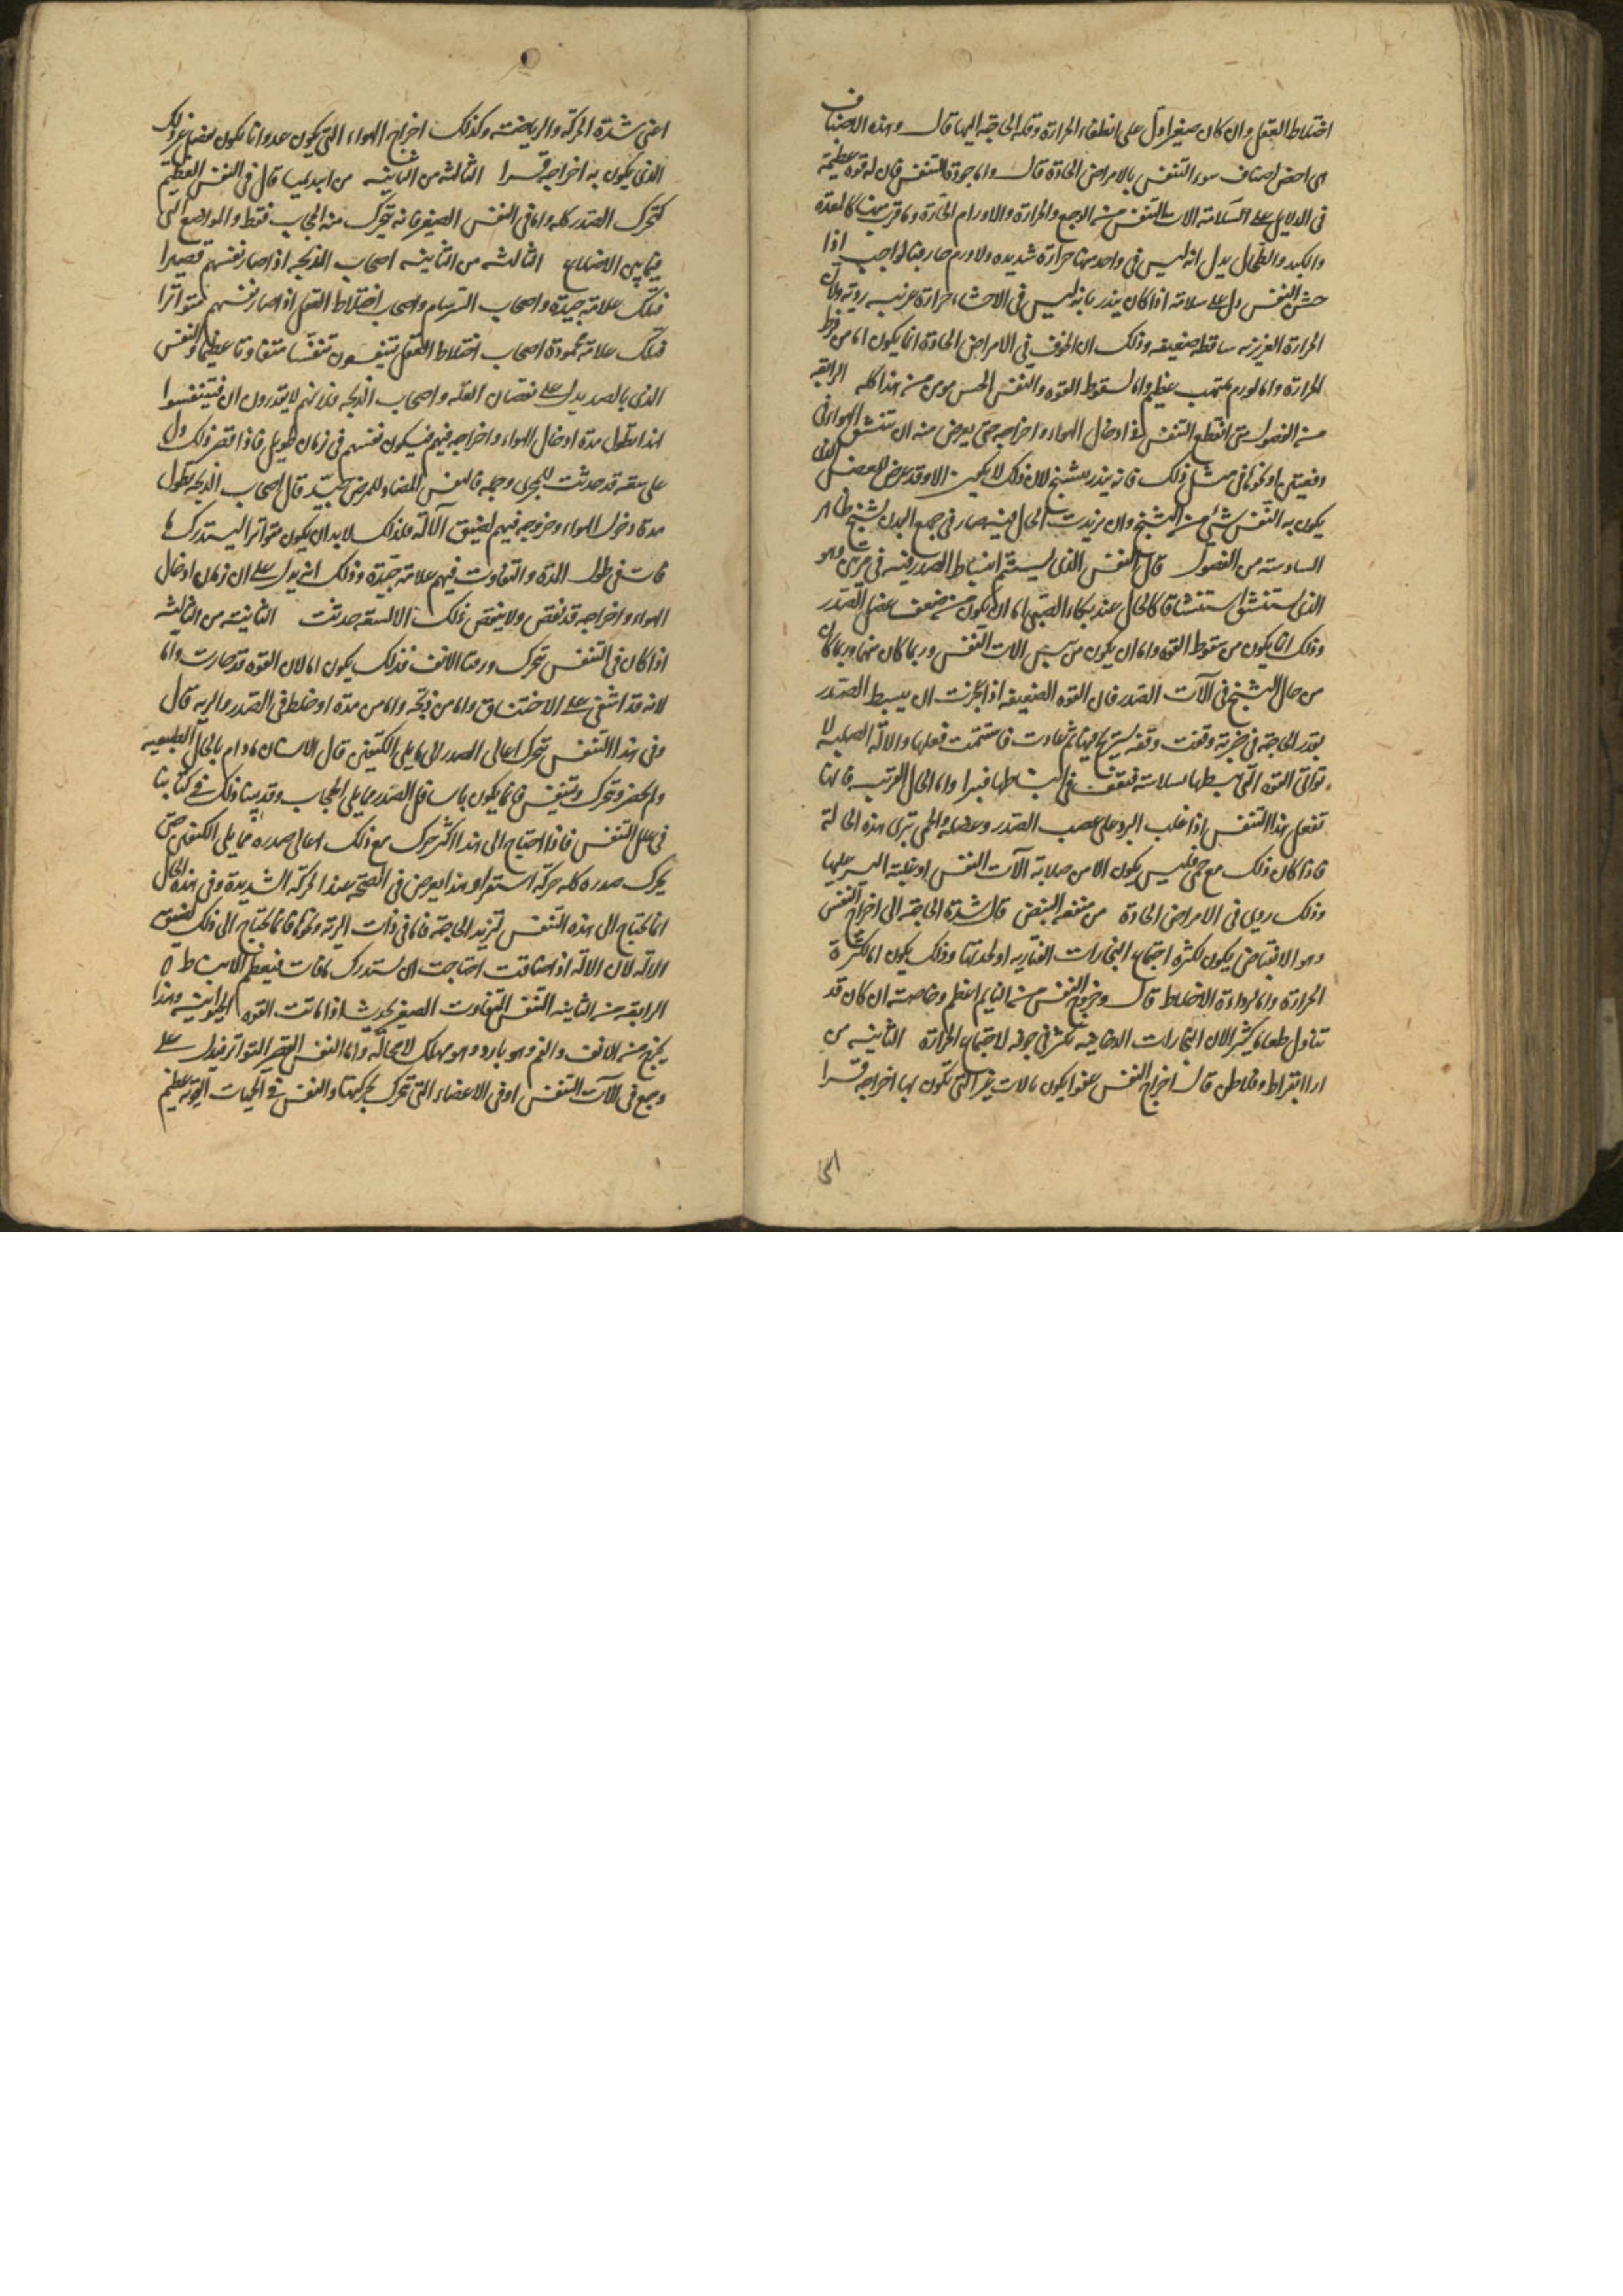 اختلاط العقل وان كان صغيرا دل على انطفاء الحرارة وقلة الحاجة اليها قال وهذه الاصناف
هي اخص اصناف سوء التنفس بالامراض الحادة قال واما جودة التنفس فان له قوة عظيمة
في الدلايل على السلامة الات التنفس من الوجع والحرارة والاورام الحارة وما قرب منها كالمعدة
والكبد والطحال يدل انه ليس في واحد منها حرارة شديدة ولا ورم حار فبالواجب اذا
حسن النفس دل على سلامة اذا كان ينذر بانه ليس في الاحشاء حرارة غريبة ردية ولا ان
الحرارة الغريزية ساقطة ضعيفة وذلك ان الخوف في الامراض الحادة انما يكون اما من فرط
الحرارة واما لورم ملتهب عظيم واما لسقوط القوة والنفس الحسن مومن من هذا كله الرابعة
من الفصول متى انقطع التنفس في ادخال الهواء واخراجه حتى يعرض منه ان تنشق الهواء في
دفعتين او نحوها في مثل ذلك فانه ينذر بتشنج لان ذلك لا يكون الا وقد عرض للعضل الذي
يكون به التنفس شيء من التشنج وان تزيدت الحال فيه صار في جميع البدن تشنج ظاهر
السادسة من الفصول قال التنفس الذي يستتم انبساط الصدر فيه في مرتين وهو
الذي يستنشق استنشاقا كالحال عند بكاء الصبي اما ان يكون من ضعف عضل الصدر
وذلك انما يكون من سقوط القوة واما ان يكون من يبس الات التنفس وربما كان منها وربما كان
من حال التشنج في الآت الصدر فان القوة الضعيفة اذا عجزت ان يبسط الصدر
بقدر الحاجة في ضربة وقفت وقفة يستريح فيها ثم عاودت فاستتمت فعلها والالة الصلبة لا
تواتي القوة التي تبسطها بسلاسة فتقف في انبساطها قسرا واما الحال القريبة فانها
تفعل هذا التنفس اذا غلب البرد على عصب الصدر وعضله والحمى تبرى هذه الحالة
فاذا كان ذلك مع حمى فليس يكون الا من صلابة الآت النفس او غلبة اليبس عليها
وذلك ردي في الامراض الحادة من منفعة النبض قال شدة الحاجة الى اخراج النفس
وهو الانقباض يكون لكثرة اجتماع البخارات الدخانية او لحدتها وذلك يكون اما لكثرة
الحرارة واما لرداءة الاخلاط قال وخروج النفس من النايم اعظم وخاصة ان كان قد
تناول طعاما كثيرا لان البخارات الدخانية تكثر في جوفه لاجتماع الحرارة الثانية من
ارا ابقراط وفلاطن قال اخراج النفس عفوا يكون بالات غير التي تكون بها اخراجه قسرا
اعنى
اعنى شدة الحركة والرياضة وكذلك اخراج الهواء التي يكون عدوا انما يكون بعضل غير ذلك
الذي يكون به اخراجه قسرا الثالثة من الثانية من ابيديميا قال في النفس العظيم
يتحرك الصدر كله واما في النفس الصغير فانه يتحرك منه الحجاب فقط والمواضع التي
فيما بين الاضلاع الثالثة من الثانية اصحاب الذبحة اذا صار نفسهم قصيرا
فتلك علامة جيدة واصحاب السرسام واصحاب اختلاط العقل اذا صار نفسهم متواترا
فتلك علامة محمودة اصحاب اختلاط العقل يتنفسون تنفسا متفاوتا عظيما والنفس
الذي بالضد يدل على نقصان العلة واصحاب الذبحة فلانهم لا يقدرون ان يتنفسوا
هذا تطول مدة ادخال الهواء واخراجه فيهم فيكون نفسهم في زمان طويل فاذا قصر ذلك دل
على سعة قد حدثت للمجرى وجملة فالنفس المضاد للمرض جيد قال اصحاب الذبحة يطول
مدة دخول الهواء وخروجه فيهم لضيق الآلة فلذلك لا بد ان يكون متواترا ليستدرك ما
فات في طول المدة والتفاوت فيهم علامة جيدة وذلك انه يدل على ان زمان ادخال
الهواء واخراجه قد نقص ولا ينقص ذلك الا لسعة حدثت الثانية من الثالثة
اذا كان في التنفس تتحرك ورقتا الانف فذلك يكون اما لان القوة قد صارت واما
لانه قد اشفى على الاختناق واما من ذبحة واما من مدة او خلط في الصدر والرية قال
وفي هذا التنفس تتحرك اعالي الصدر التي تلي الكتفين قال الانسان ما دام بالحال الطبيعية
ولم يحضر وتحرك وتنفس فانما يكون باسافل الصدر مما يلي الحجاب وقد بينا ذلك في كتابنا
في علل التنفس فاذا احتاج الى هذا اكثر حرك مع ذلك اعالي صدره مما يلي الكتفين حتى
يحرك صدره كله حركة استقراو هذا يعرض في الصحة عند الحركة الشديدة وفي هذه الحال
انما يحتاج الى هذه التنفس لتزيد الحاجة فاما في ذات الرية ونحوها فانما يحتاج الى ذلك لضيق
الالة لان الالة اذا ضاقت احتاجت ان تستدرك ما فات فيعظم الانبساط ه
الرابعة من الثانية التنفس المتفاوت الصغير يحدث اذا ماتت القوة الحيوانية وهذا
يخرج من الانف والفم وهو بارد وهو مهلك لا محالة واما النفس الصغير المتواتر فيدل على
وجع في الآت التنفس او في الاعضاء التي تتحرك بحركتها والنفس في الحميات القوية عظيم